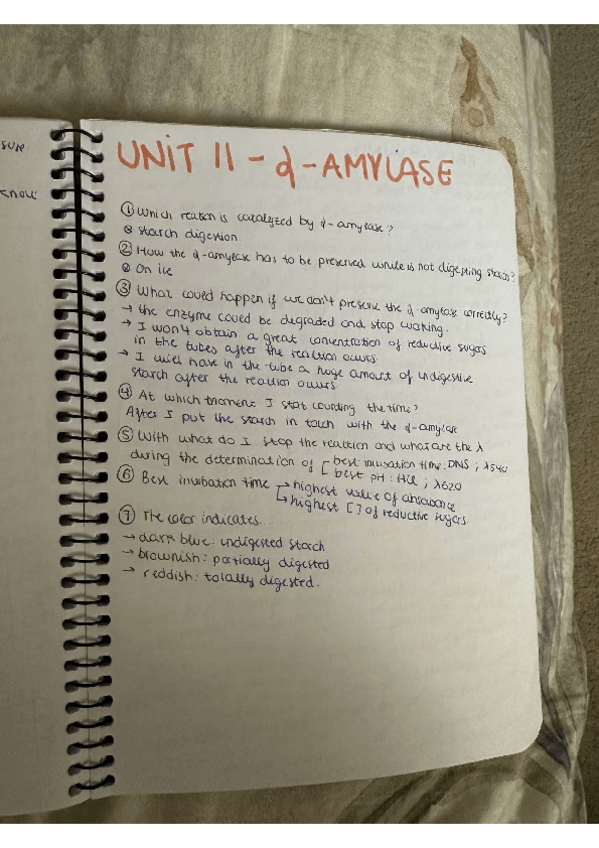 sure
know
UNIT 11 - α-AMYLASE
① Which reation is catalyzed by α-amylase?
⊗ starch digestion.
② How the α-amylase has to be preserved while is not digesting starch?
⊗ On ice
③ What could happen if we don't preserve the α-amylase correctly?
→ the enzyme could be degraded and stop working.
→ I won't obtain a great concentration of reductive sugars
in the tubes after the reaction occurs
→ I will have in the tube a huge amount of indigestive
starch after the reaction occurs
④ At which moment I start counting the time?
After I put the starch in touch with the α-amylase
⑤ With what do I stop the reaction and what are the λ
during the determination of [best incubation time: DNS ; λ540
[best pH : HCl ; λ620
⑥ Best incubation time → highest value of absorbance
↳ highest [ ] of reductive sugars
⑦ The color indicates...
→ dark blue: undigested starch
→ brownish: partially digested
→ reddish: totally digested.